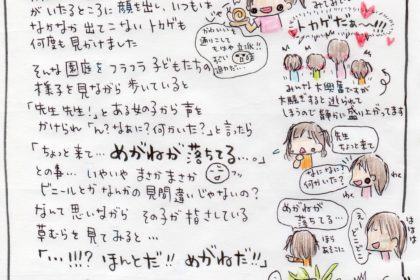 がいたるところに顔を出し、いつもは
なかなか出てこないトカゲも
何度も見かけました
そんな園庭をフラフラ子どもたちの
様子を見ながら歩いていると
「先生先生!」とある女の子から声を
かけられ「ん?なぁに?何かいた?」と言ったら
「ちょっと来て…めがねが落ちてる…。」
との事… いやいや まさか まさか
ビニールとかなんかの見間違いじゃないの?
なんて思いながら その子が指さしている
草むらを見てみると…
「…!!!? ほんとだ!! めがねだ!!」
みしみし
トカゲだぁ〜!!
かわいいを
通りこして
もはや立派!!
みんな大興奮ですが
大騒ぎすると逃げられて
しまうので静かに盛り上がってます
先生
ちょっと来て
なになに?
何かいた?
わく
わく
めがねが
落ちてる…
ほら
あそこに
えー
どこどこ
ははは